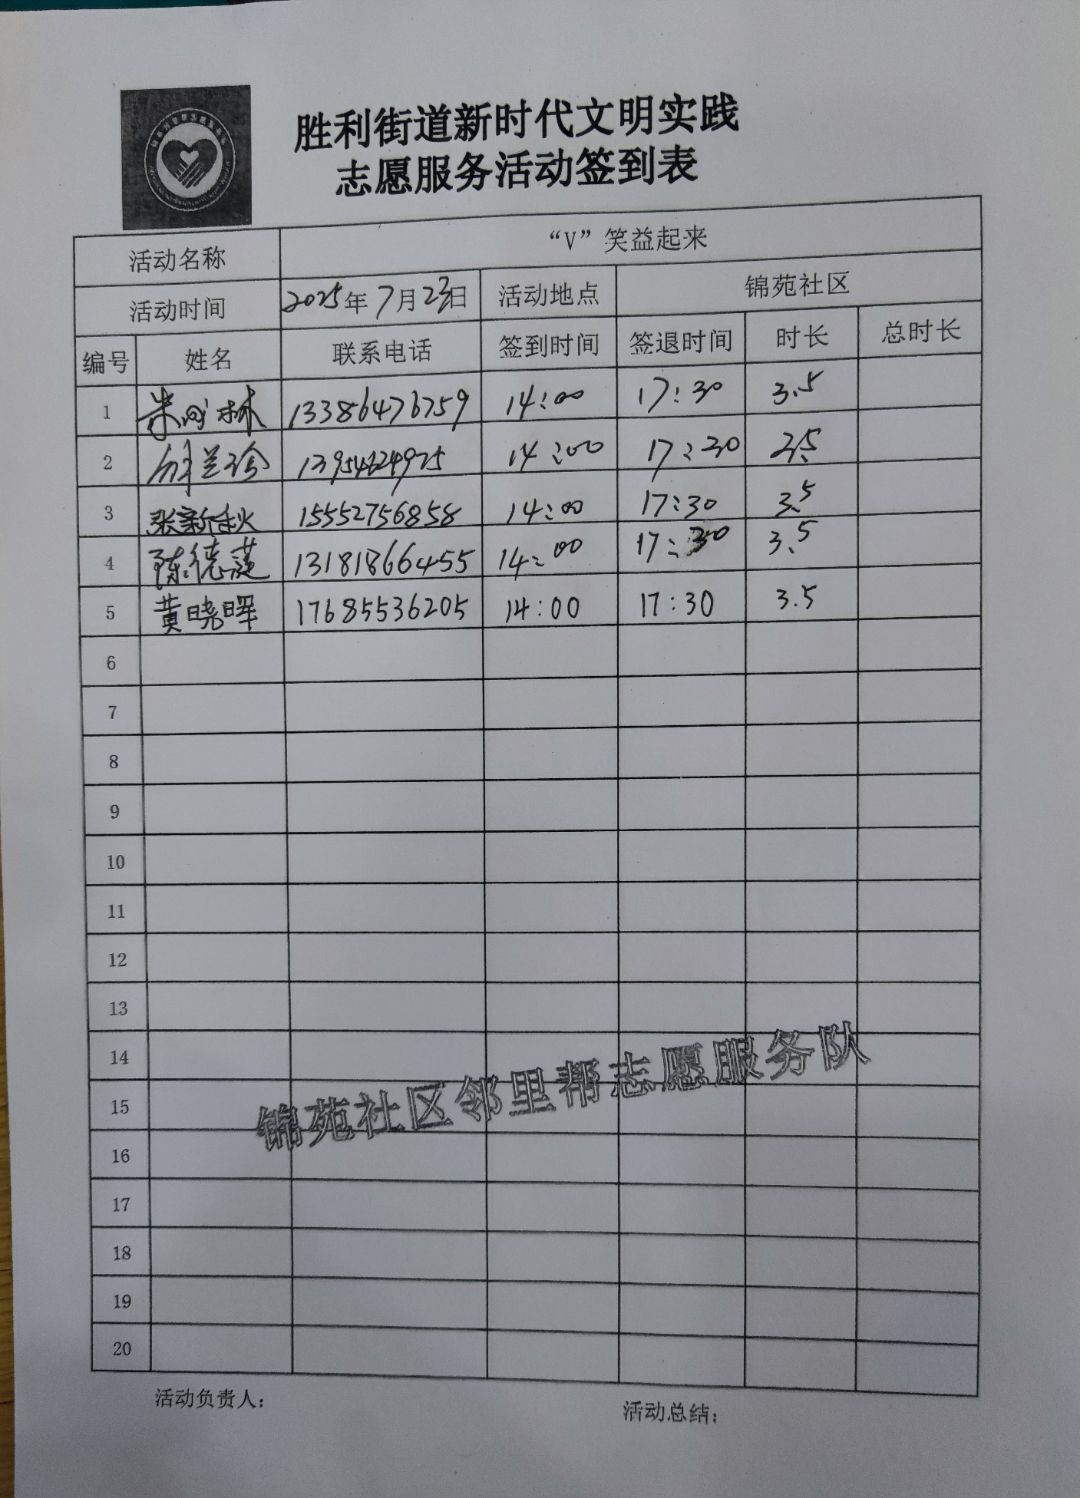 胜利街道新时代文明实践
志愿服务活动签到表
活动名称 “V”笑益起来
活动时间 2025年7月23日 活动地点 锦苑社区
编号 姓名 联系电话 签到时间 签退时间 时长 总时长
1 朱 林 13386476759 14:00 17:30 3.5
2 14:00 17:30 3.5
3 张新秋 15552756858 14:00 17:30 3.5
4 陈德莲 13181866455 14:00 17:30 3.5
5 黄晓晖 17685536205 14:00 17:30 3.5
6
7
8
9
10
11
12
13
14
15
16
17
18
19
20
锦苑社区邻里帮志愿服务队
活动负责人: 活动总结: